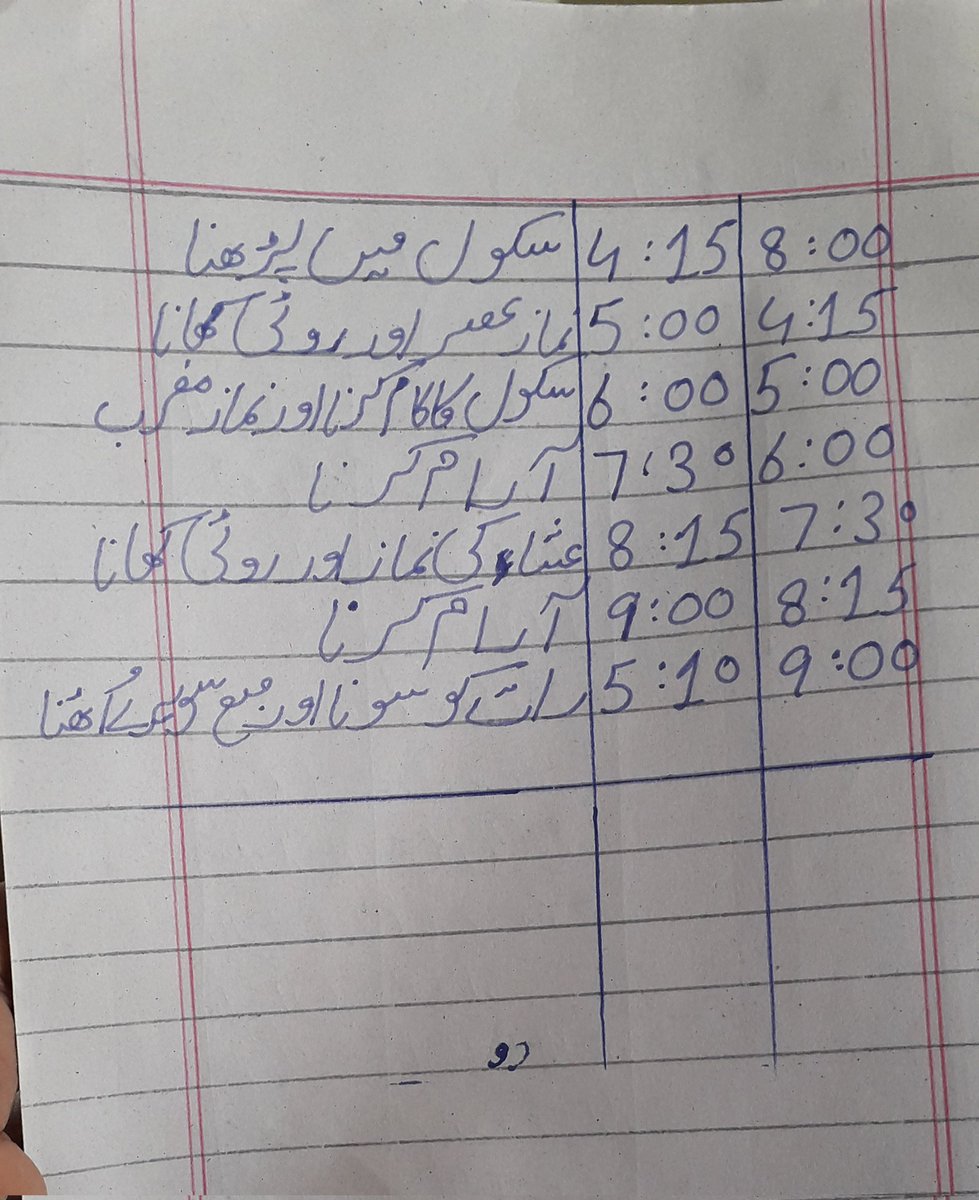 8:00 4:15 سکول میں پڑھنا
4:15 5:00 نماز عصر اور روٹی کھانا
5:00 6:00 سکول کا کام کرنا اور نماز مغرب
6:00 7:30 آرام کرنا
7:30 8:15 عشاء کی نماز اور روٹی کھانا
8:15 9:00 آرام کرنا
9:00 5:10 رات کو سونا اور صبح سویرے اُٹھنا